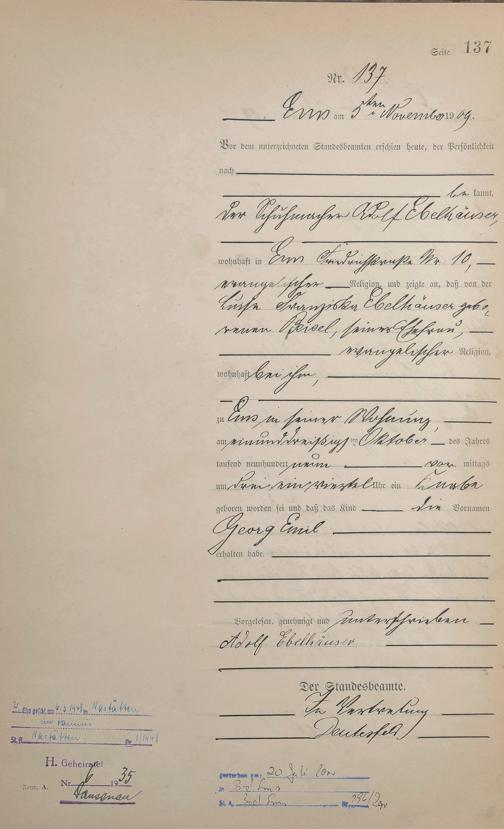 Seite 137
Nr. 137
Ems am 5ten November 1909.
Vor dem unterzeichneten Standesbeamten erschien heute, der Persönlichkeit
nach
bekannt,
der Schuhmacher Adolf Ebelhäuser,
wohnhaft in Ems Friedrichstraße Nr. 10,
evangelischer Religion, und zeigte an, daß von der
Luise Franziska Ebelhäuser gebo-
renen Beisel, seiner Ehefrau,
evangelischer Religion,
wohnhaft bei ihm,
zu Ems in seiner Wohnung,
am einunddreißigsten Oktober des Jahres
tausend neunhundert neun vor mittags
um drei ein viertel Uhr ein Knabe
geboren worden sei und daß das Kind die Vornamen
Georg Emil
erhalten habe.
Vorgelesen, genehmigt und unterschrieben
Adolf Ebelhäuser
Der Standesbeamte.
In Vertretung
Ehe geschl. am in Nastätten
St. A. Nastätten Nr. 1/1948
H. Geheiratet
Nr. 6 1935
Dausenau
gestorben am: 20 Juli
in Bad Ems
St. A. Bad Ems Nr.